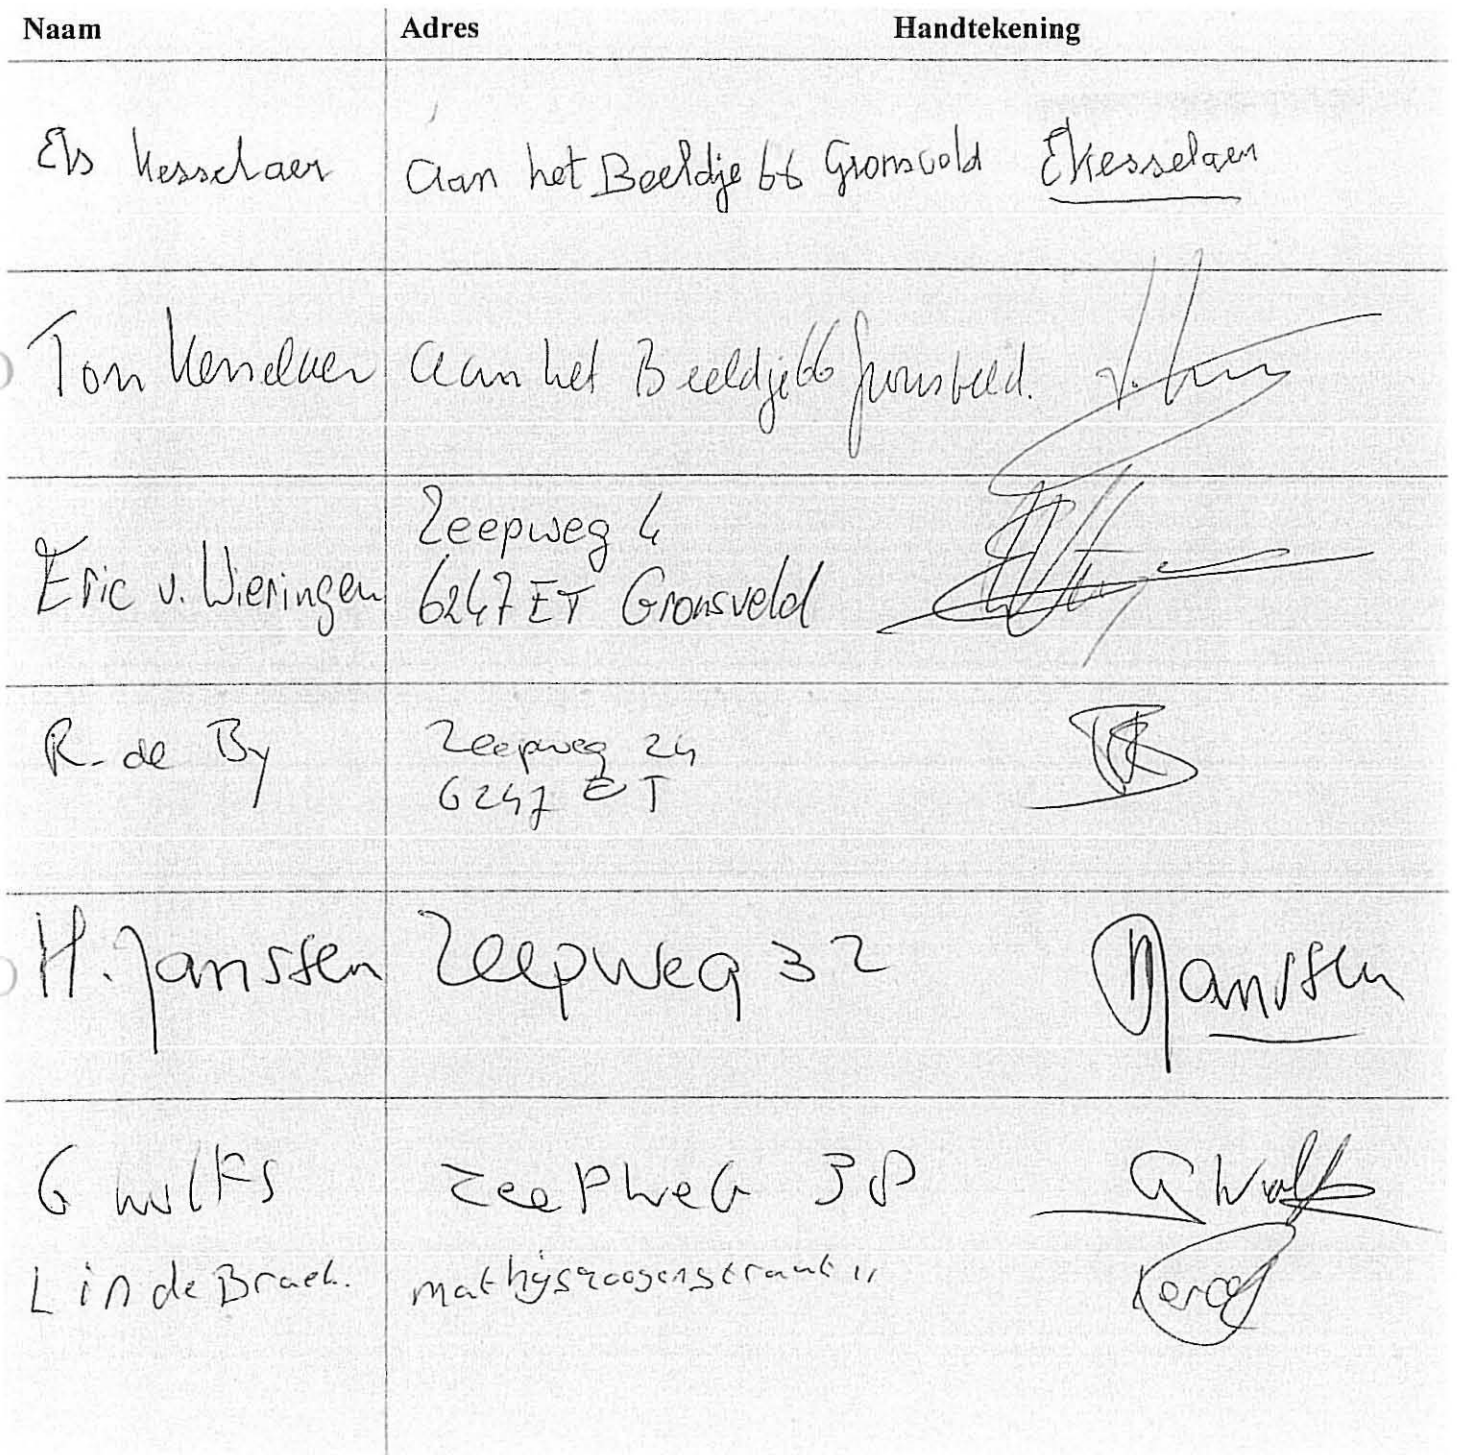 Naam Adres Handtekening
Els Kesselaer Aan het Beeldje 66 Gronsveld EKesselaer
Ton Kesselaer Aan het Beeldje 66 Gronsveld.
Zeepweg 4
Eric v. Wieringen 6247 ET Gronsveld
R. de By Zeepweg 24
6247 ET
H. Janssen Zeepweg 32 Janssen
G Wolfs ZeePWeG 38 G Wolfs
L in de Braek.